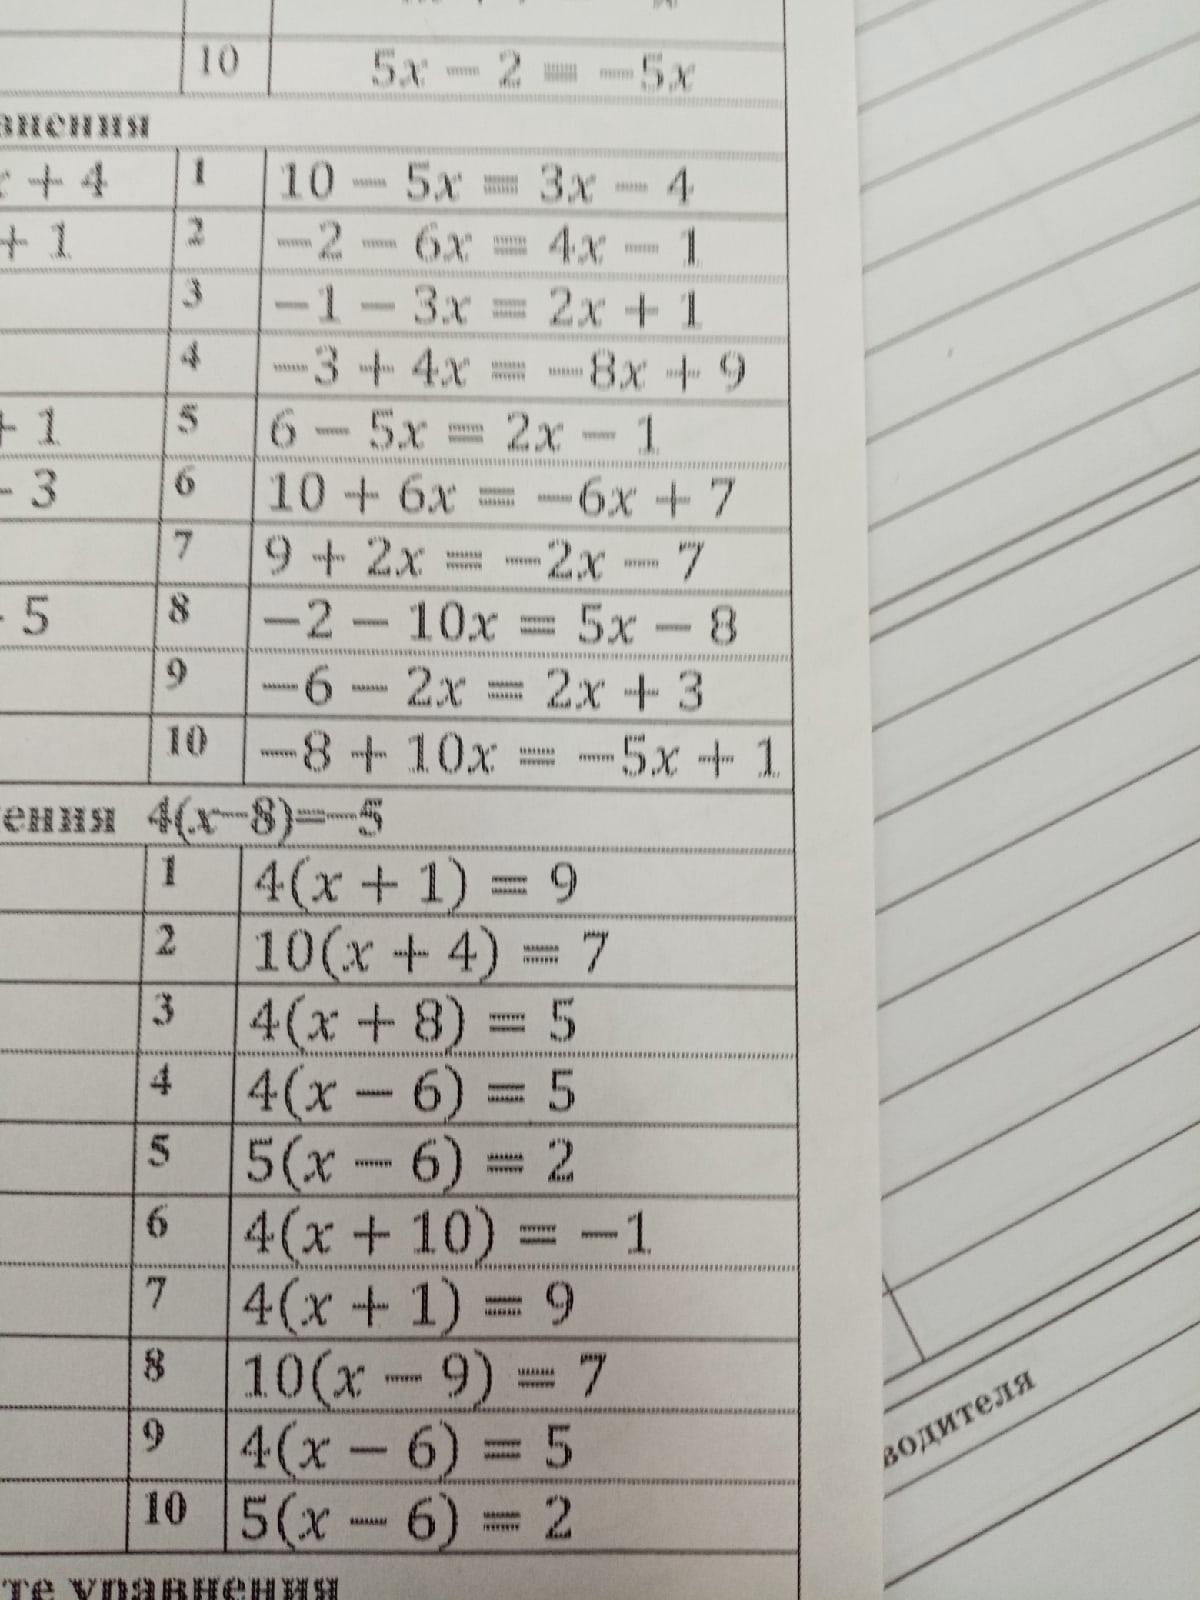 10 5x − 2 = −5x
внения
x + 4 1 10 − 5x = 3x − 4
+ 1 2 −2 − 6x = 4x − 1
3 −1 − 3x = 2x + 1
4 −3 + 4x = −8x + 9
+ 1 5 6 − 5x = 2x − 1
− 3 6 10 + 6x = −6x + 7
7 9 + 2x = −2x − 7
5 8 −2 − 10x = 5x − 8
9 −6 − 2x = 2x + 3
10 −8 + 10x = −5x + 1
ения 4(x−8)=−5
1 4(x + 1) = 9
2 10(x + 4) = 7
3 4(x + 8) = 5
4 4(x − 6) = 5
5 5(x − 6) = 2
6 4(x + 10) = −1
7 4(x + 1) = 9
8 10(x − 9) = 7
9 4(x − 6) = 5
10 5(x − 6) = 2
те уравнения
водителя